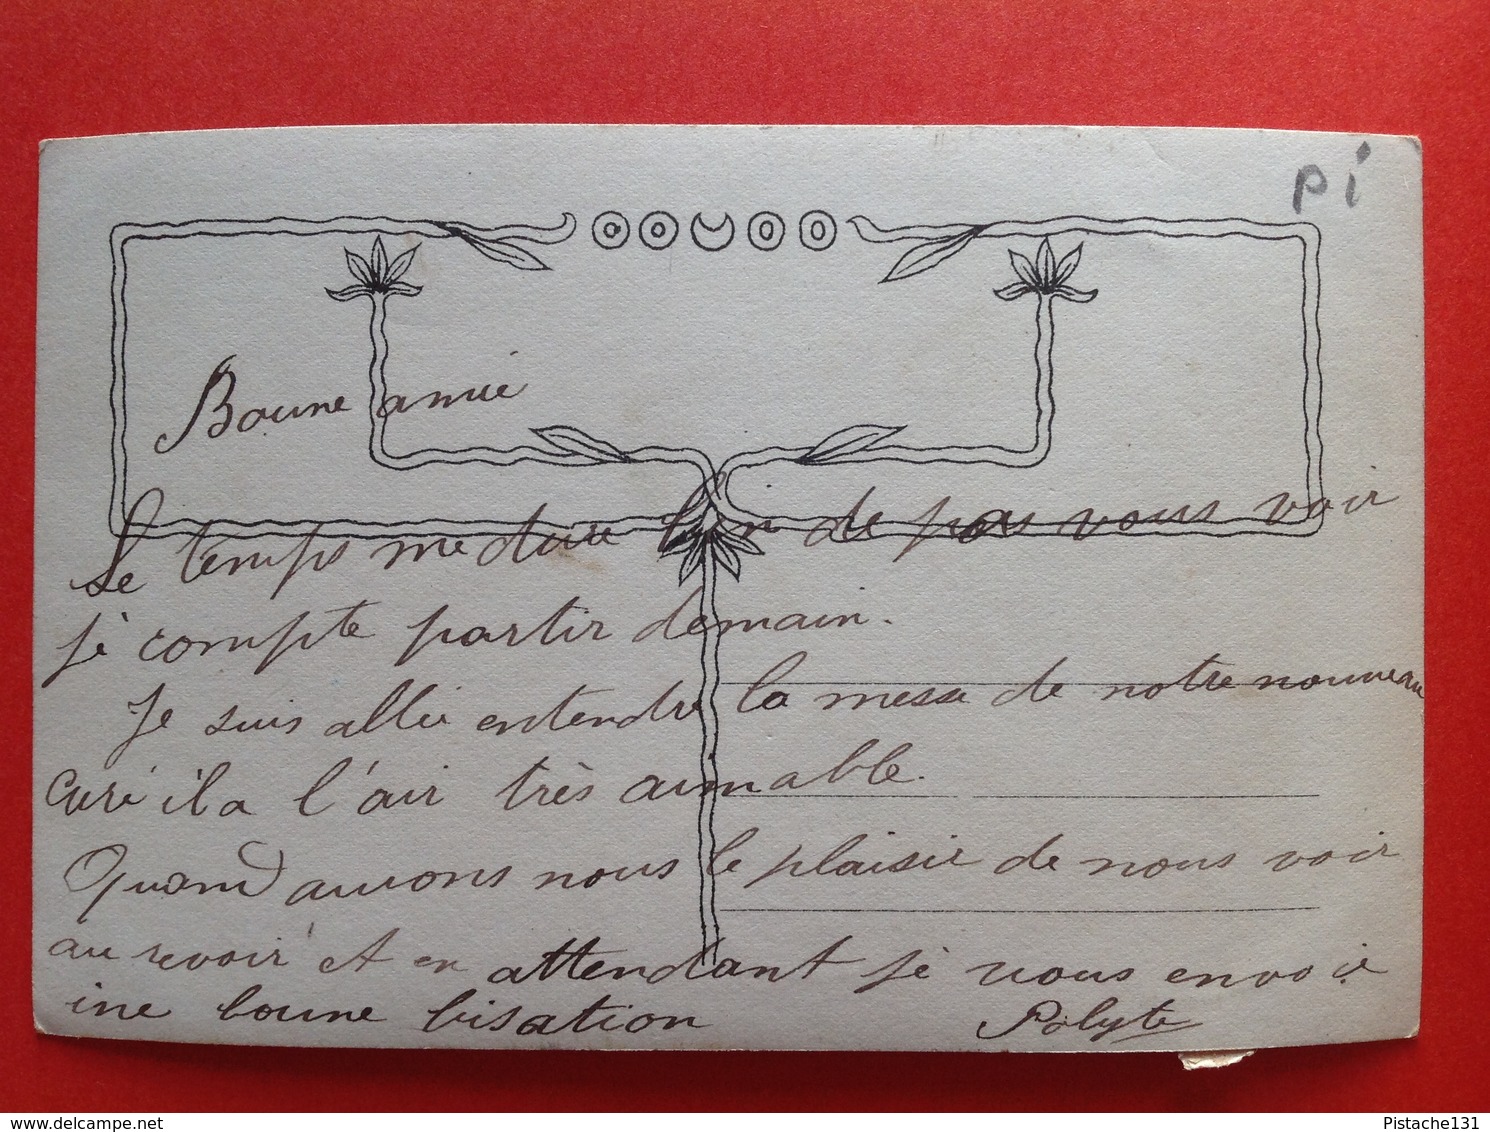 pi
Bonne amie
Le temps me dure bien de pas vous voir
je compte partir demain.
Je suis allée entendre la messe de notre nouveau
curé il a l'air très aimable.
Quand aurons nous le plaisir de nous voir
au revoir et en attendant je vous envoie
ine bonne bisation
Polyte
delcampe.net
Pistache131